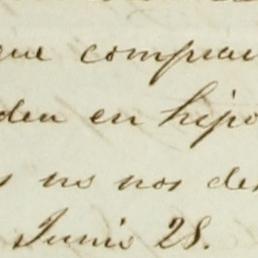 que comprar
den en hipo
s no nos des
Junio 28.